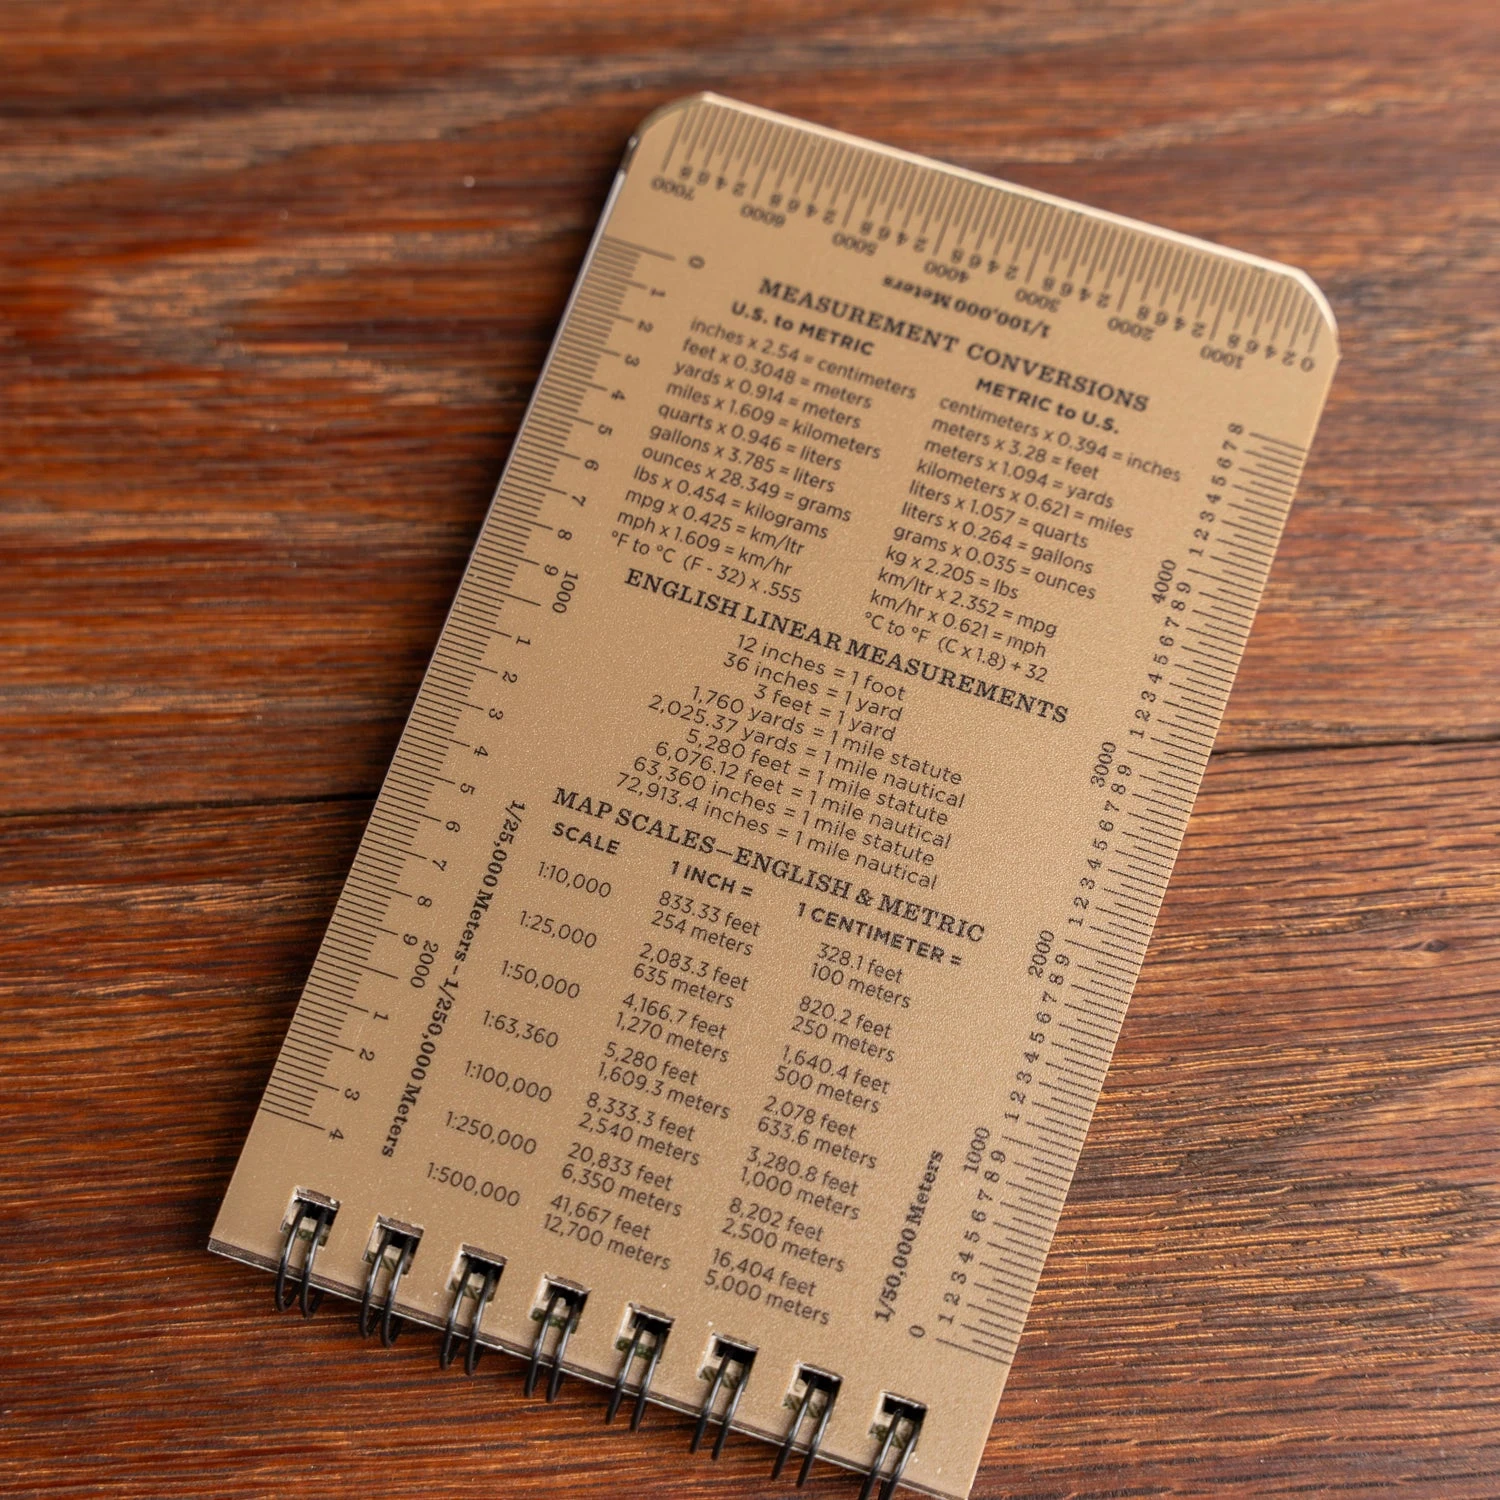 7000 8 6 4 2 6000 8 6 4 2 5000 8 6 4 2 4000 8 6 4 2 3000 8 6 4 2 2000 8 6 4 2 1000 8 6 4 2 0
1/100,000 Meters
MEASUREMENT CONVERSIONS
U.S. to METRIC
inches x 2.54 = centimeters
feet x 0.3048 = meters
yards x 0.914 = meters
miles x 1.609 = kilometers
quarts x 0.946 = liters
gallons x 3.785 = liters
ounces x 28.349 = grams
lbs x 0.454 = kilograms
mpg x 0.425 = km/ltr
mph x 1.609 = km/hr
°F to °C (F - 32) x .555
METRIC to U.S.
centimeters x 0.394 = inches
meters x 3.28 = feet
meters x 1.094 = yards
kilometers x 0.621 = miles
liters x 1.057 = quarts
liters x 0.264 = gallons
grams x 0.035 = ounces
kg x 2.205 = lbs
km/ltr x 2.352 = mpg
km/hr x 0.621 = mph
°C to °F (C x 1.8) + 32
ENGLISH LINEAR MEASUREMENTS
12 inches = 1 foot
36 inches = 1 yard
3 feet = 1 yard
1,760 yards = 1 mile statute
2,025.37 yards = 1 mile nautical
5,280 feet = 1 mile statute
6,076.12 feet = 1 mile nautical
63,360 inches = 1 mile statute
72,913.4 inches = 1 mile nautical
MAP SCALES—ENGLISH & METRIC
SCALE 1 INCH = 1 CENTIMETER =
1:10,000 833.33 feet 328.1 feet
254 meters 100 meters
1:25,000 2,083.3 feet 820.2 feet
635 meters 250 meters
1:50,000 4,166.7 feet 1,640.4 feet
1,270 meters 500 meters
1:63,360 5,280 feet 2,078 feet
1,609.3 meters 633.6 meters
1:100,000 8,333.3 feet 3,280.8 feet
2,540 meters 1,000 meters
1:250,000 20,833 feet 8,202 feet
6,350 meters 2,500 meters
1:500,000 41,667 feet 16,404 feet
12,700 meters 5,000 meters
0 1 2 3 4 5 6 7 8 9 1000 1 2 3 4 5 6 7 8 9 2000 1 2 3 4
1/25,000 Meters - 1/250,000 Meters
0 1 2 3 4 5 6 7 8 9 1000 1 2 3 4 5 6 7 8 9 2000 1 2 3 4 5 6 7 8 9 3000 1 2 3 4 5 6 7 8 9 4000 1 2 3 4 5 6 7 8
1/50,000 Meters